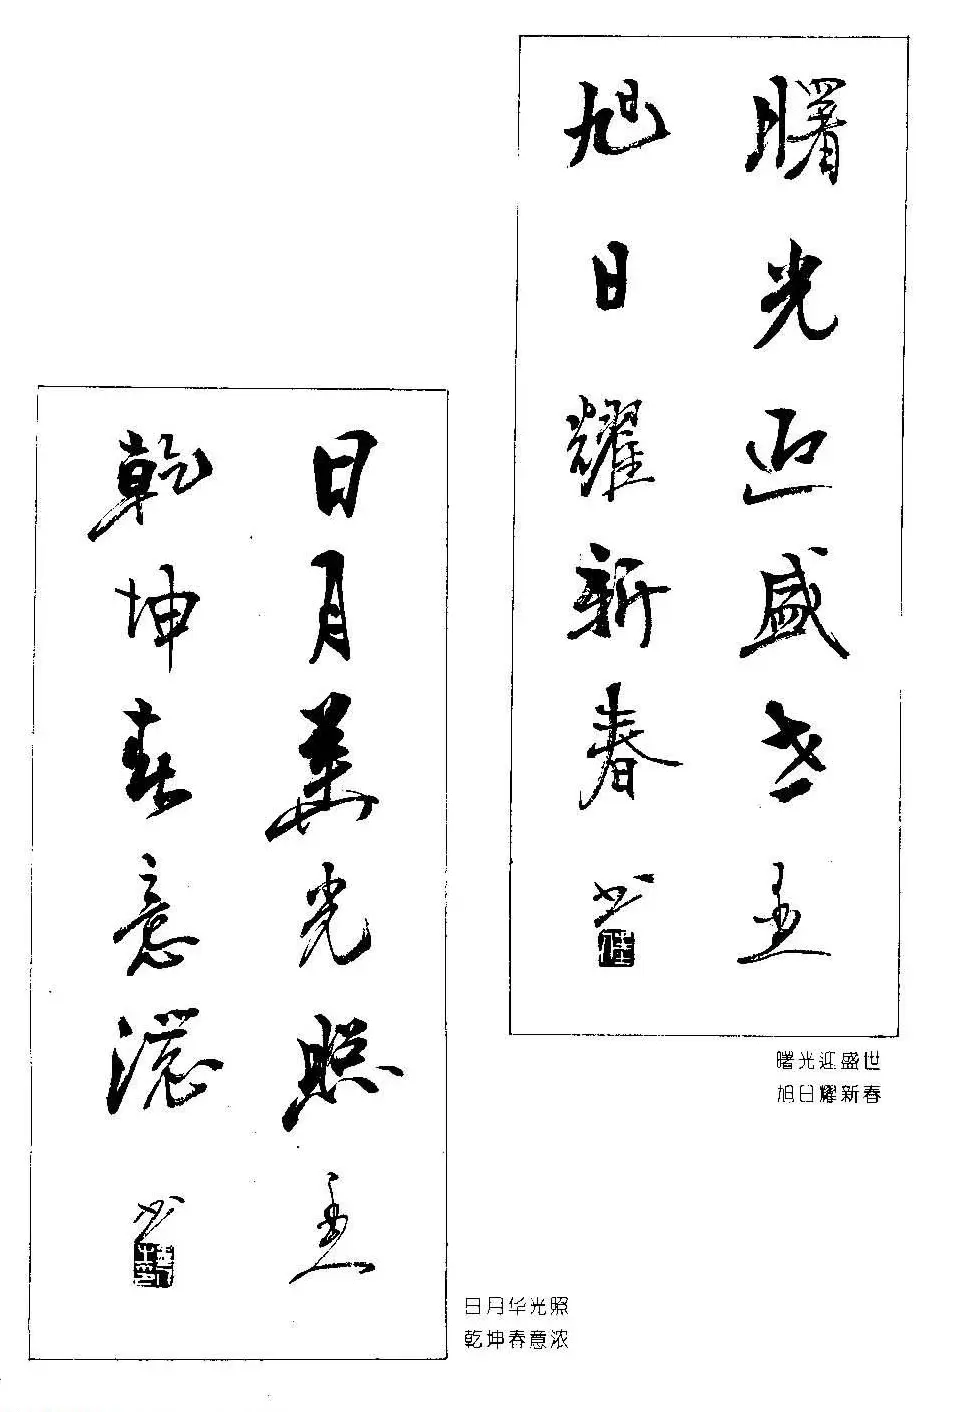 曙光迎盛世
旭日耀新春
曙光迎盛世
旭日耀新春
日月華光照
乾坤春意濃
日月华光照
乾坤春意浓